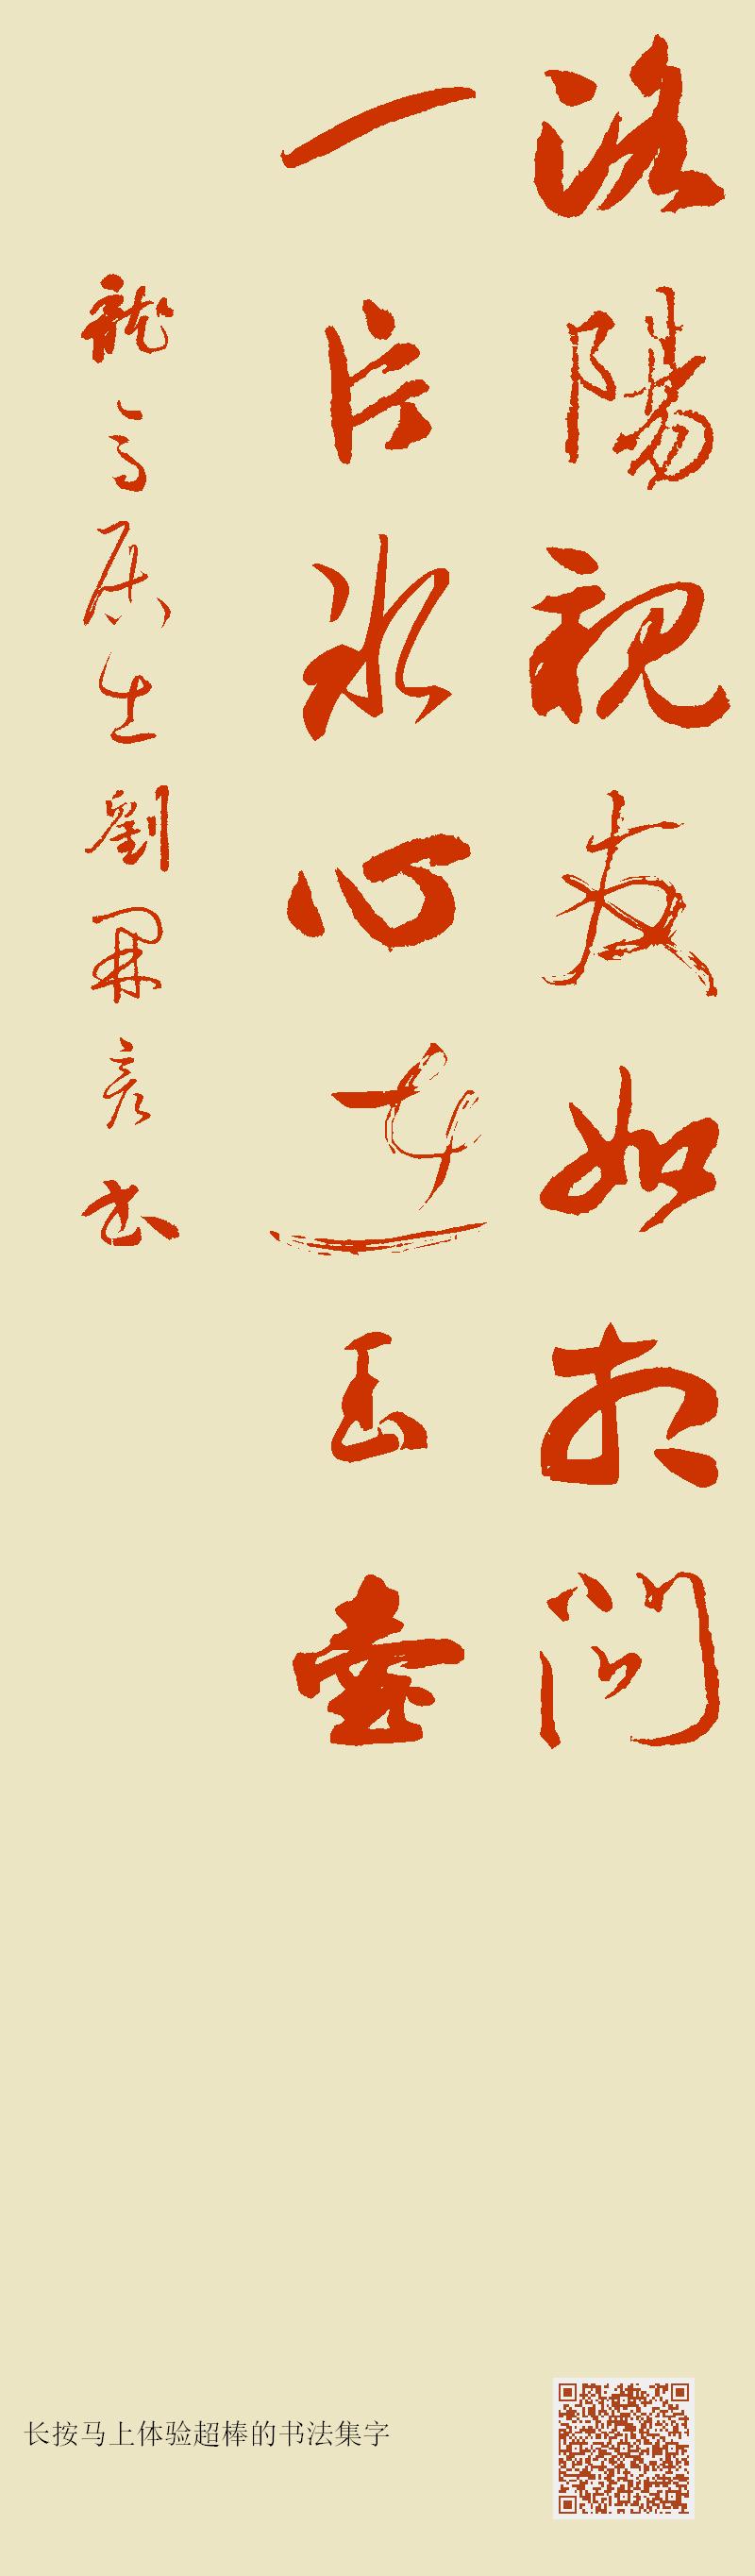 洛陽親友如相問
一片冰心在玉壺
龍居生劉開彦書
长按马上体验超棒的书法集字